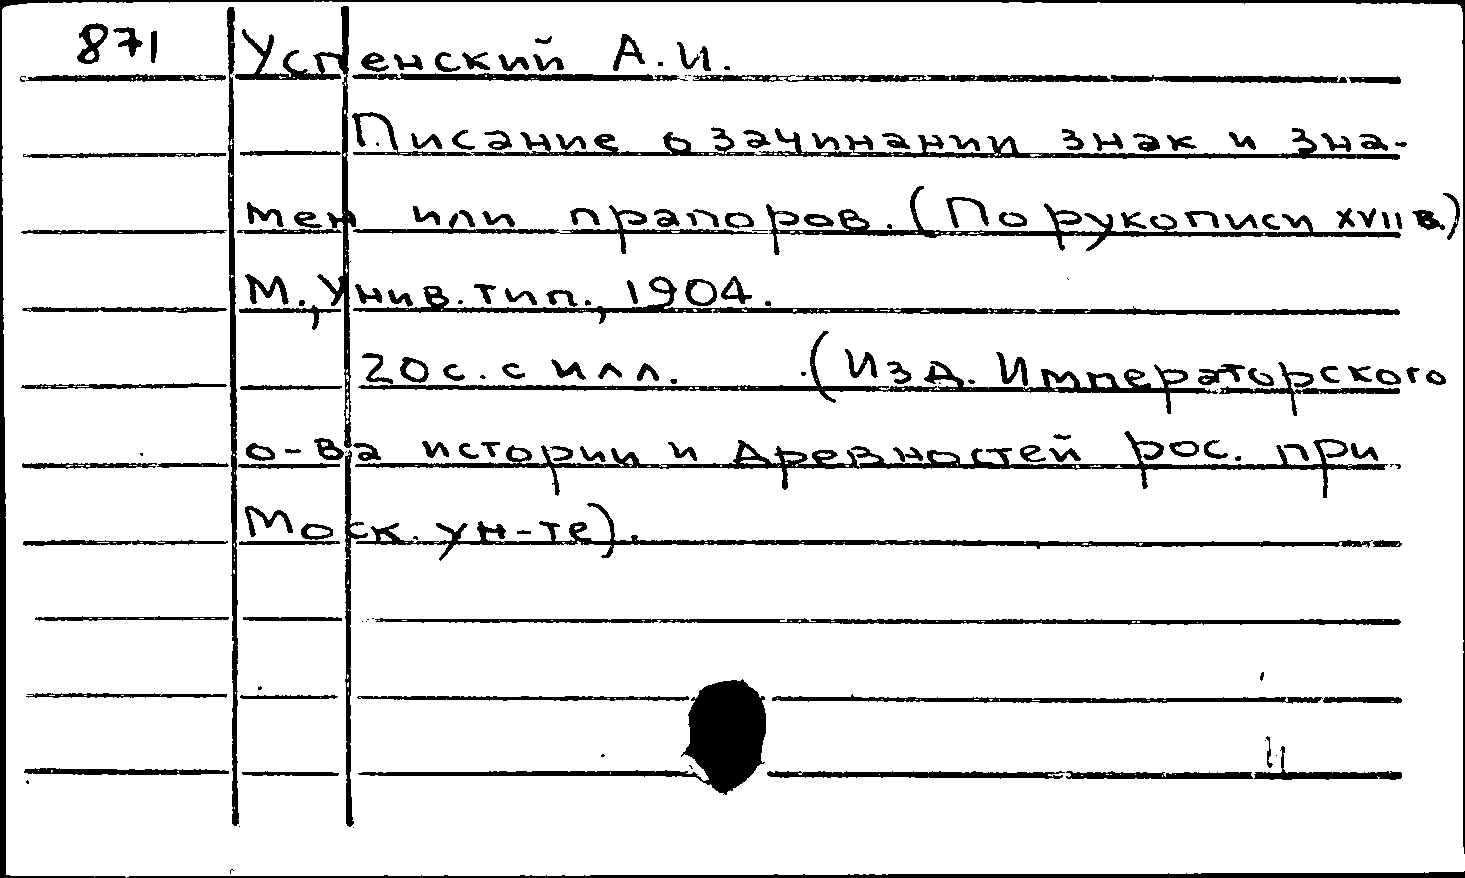 871 Успенский А.И.
Писание о зачинании знак и зна-
мен или прапоров. (По рукописи XVII в.)
М., Унив. тип., 1904.
20 с. с илл. (Изд. Императорского
о-ва истории и древностей рос. при
Моск. ун-те).